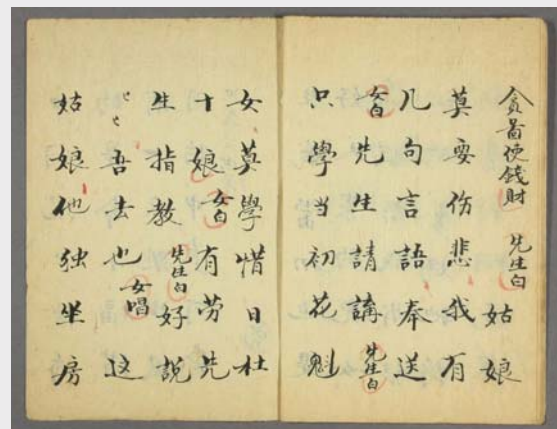 貪啚便錢財 先生白 姑娘
莫要伤悲我有
几句言語奉送
女白先生請講先生白
只學当初花魁
女莫學惜日杜
十娘女白有劳先
生指教先生白好說
吾去也女唱这
姑娘他独坐房